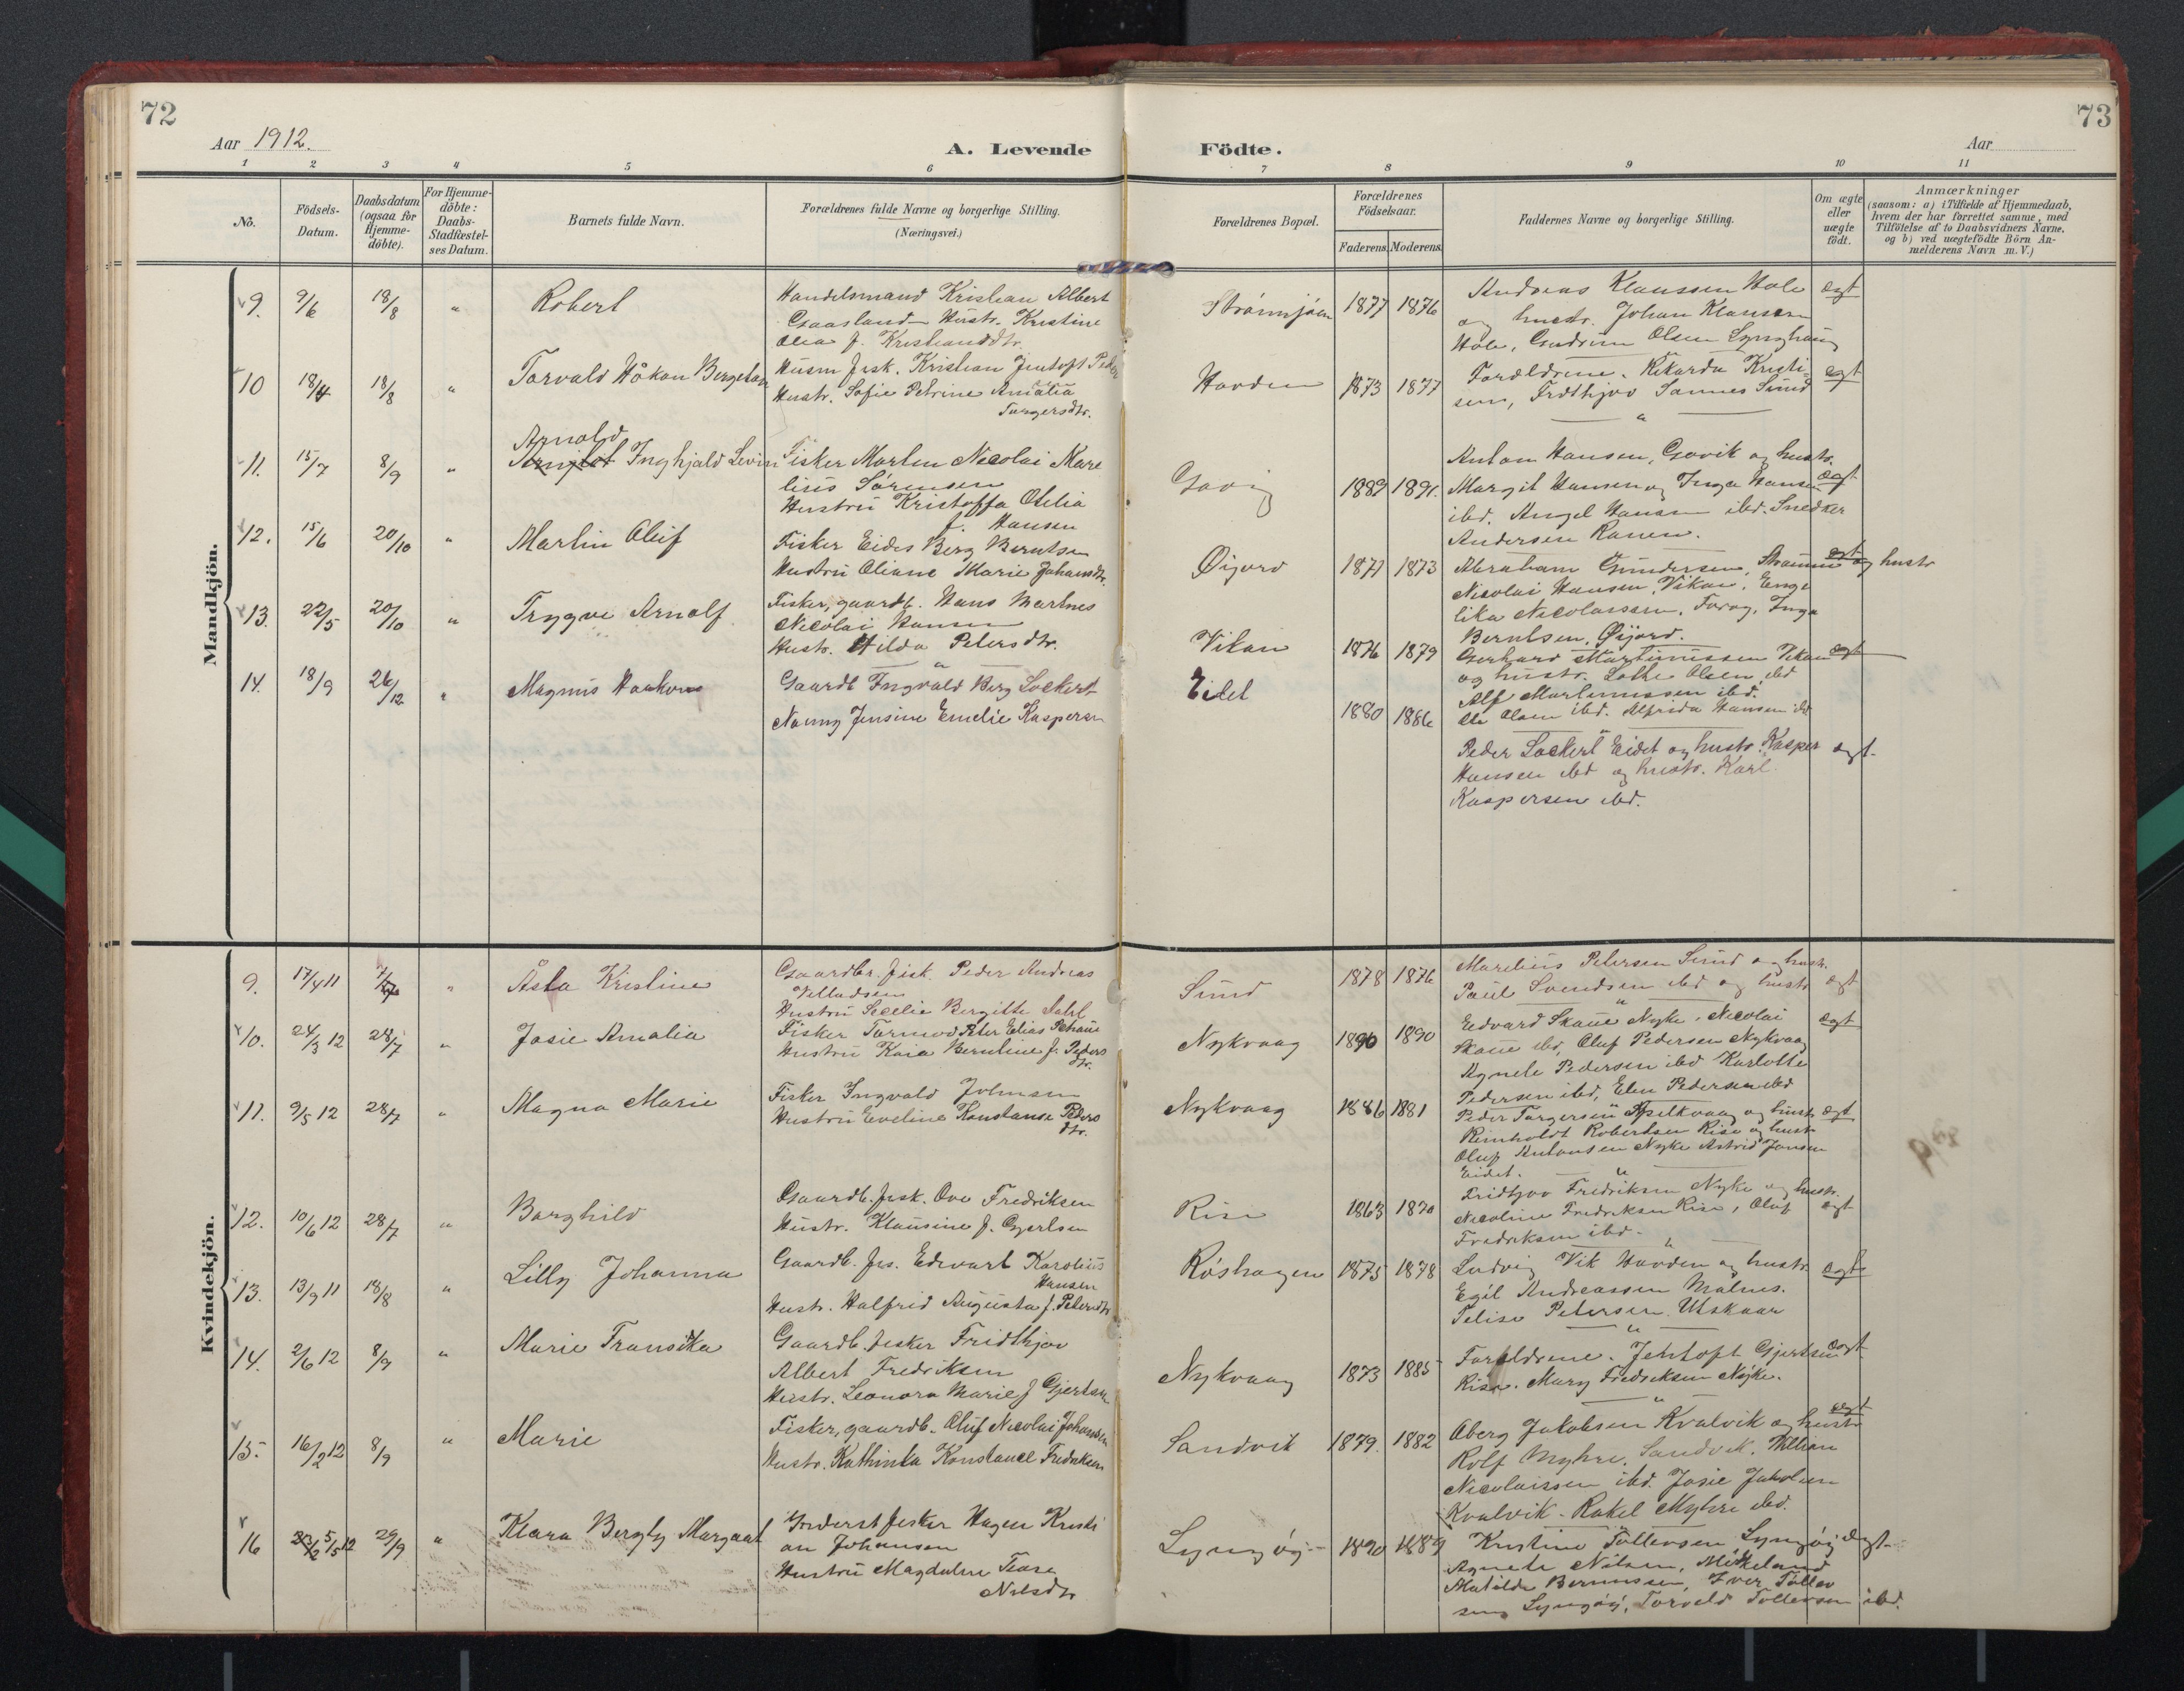 72
Aar 1912.
A. Levende
1 2 3 4 5 6
No.
Födsels-Datum.
Daabsdatum (ogsaa for Hjemme-döbte).
For Hjemme-döbte: Daabs-Stadfæstel-ses Datum.
Barnets fulde Navn.
Forældrenes fulde Navne og borgerlige Stilling.
(Næringsvei.)
73
Födte.
Aar
7 8 9 10 11
Forældrenes Bopæl.
Forældrenes Födselsaar.
Faderens. Moderens.
Faddernes Navne og borgerlige Stilling.
Om ægte eller uægte födt.
Anmærkninger
(saasom: a) i Tilfælde af Hjemmedaab,
hvem der har forrettet samme, med
Tilföielse af to Daabsvidners Navne.
og b) ved uægtefödte Börn An-
melderens Navn m. V.)
Mandkjön.
9. 9/6 18/8 " Robert
Handelsmand Kristian Albert
Gaasland Hustr. Kristine
Olea f. Kristiansdtr.
1877 1876
Andreas Klaussen Hole
og hustr. Johan Klausen
Hole, Gudrun Olsen
ægt
10 18/4 18/8 " Torvald Håkon
Husm fisk. Kristian Jentoft Peder
Hustr. Sofie Petrine Amalia
Torgersdtr.
Hovden 1873 1877
Forældrene. Rikarda Kristi-
sen, Fridthjov Sannes Sund
"
ægt
11. 15/7 8/9 "
Arnold
Inghjald Levin
Fisker Martin Nicolai Kare
lius Sörensen
Hustru Kristoffa Otelia
f. Hansen
1889 1891.
Anton Hansen, Gavik og hustr.
Margit Hansen og Inga Hansen
ibd. Angel Hansen ibd. Snedker
Andersen Ranen.
ægt
12. 15/6 20/10 " Martin Oluf
Fisker Eides Berg Berntsen
Hustru Oliane Marie Johansdtr.
Øijord 1871 1873
Abraham Gundersen, og hustr
Nicolai Hansen, Vikan, Enge
lika Nicolaisen, Inga
Berntsen, Øijord.
ægt
13. 22/5 20/10 " Trygve Arnolf
Fisker, gaardb. Hans Martnes
Nicolai Hansen
Hustr. Hilda Petersdtr.
"
Vikan 1876 1879
Gerhard Martinussen Vikan
og hustr. Lothe Olsen ibd
Alf Martinussen ibd.
Ole Olsen ibd. Alfrida Hansen ibd
ægt
14. 18/9 26/12 " Magnus Haakon
Gaardb Ingvald Berg Lockert
Nanny Jensine Emelie Kaspersen
Eidet 1880 1886
Peder Lockert Eidet og hustr. Kasper
Hansen ibd og hustr. Karl
Kaspersen ibd.
ægt.
Kvindekjön.
9. 17/4 11 7/7 " Åsta Kristine
Gaardbr. fisk. Peder Andreas
Villadsen
Hustru Secelie Bergitte Dahl
Sund 1878 1876
Marelius Petersen Sund og hustr.
Paul Svendsen ibd og hustr
"
ægt
10. 24/3 12 28/7 " Josie Amalia
Fisker Tormod Peter Elias Skaue
Hustru Kaia Berntine f. Peders
dtr.
Nykvaag 1890 1890
Edvard Skaue Nyke, Nicolai
Skaue ibd, Oluf Pedersen Nykvaag
Agnete Pedersen ibd Karlotte
Pedersen ibd, Elen Pedersen ibd
ægt
11. 9/5 12 28/7 " Magna Marie
Fisker Ingvald Johnsen
Hustru Eveline Konstanse Peders
dtr.
Nykvaag 1886 1881
Peder Torgersen og hustr
Reinholdt Robertsen Rise og hustr
Oluf Antonsen Nyke Astrid Jansen
Eidet. "
ægt
12. 10/6 12 28/7 " Borghild
Gaardb. fisk. Ove Fredriksen
Hustr. Klausine f. Gjertsen
Rise 1863 1870
Fridtjov Fredriksen Nyke og hustr.
Nicoline Fredriksen Rise, Oluf
Fredriksen ibd. "
ægt
13. 13/9 11 18/8 " Lilly Johanna
Gaardb. fis. Edvart Karolius
Hansen
Hustr. Halfrid Augusta f. Petersdtr
Röshagen 1875 1878
Ludvig Vik Hovden og hustr.
Egil Andreassen Malnes.
Felise Petersen Utskaar
"
ægt
14. 2/6 12 8/9 " Marie Fransika
Gaardb. fisker Fridthjov
Albert Fredriksen
Hustr. Leonora Marie f Gjertsen
Nykvaag 1873 1885
Forældrene. Jentoft Gjertsen
Rise. Mary Fredriksen Nyke.
"
ægt
15. 16/2 12 8/9 " Marie
Fisker, gaardb. Oluf Nicolai Johansen
Hustr. Kathinka Konstance Fredriksen
Sandvik 1879. 1882
Oberg Jakobsen Kvalvik og hustr
Rolf Myhre, Sandvik. Willian
Nicolaissen ibd. Josie Jakobsen
Kvalvik. Rakel Myhre ibd.
ægt
16 5/5 12 29/9 " Klara Bergly Margaat
Inderst fisker Hagen Kristi
an Johansen
Hustru Magdalene Thora
Nilsdtr
Lyngøy 1890 1889
Kristine Tollevsen, Lyngöy
Agnete Nilsen,
Matilde Bernussen, Iver Tollev
sen Lyngöy, Torvald Tollevsen ibd.
ægt.